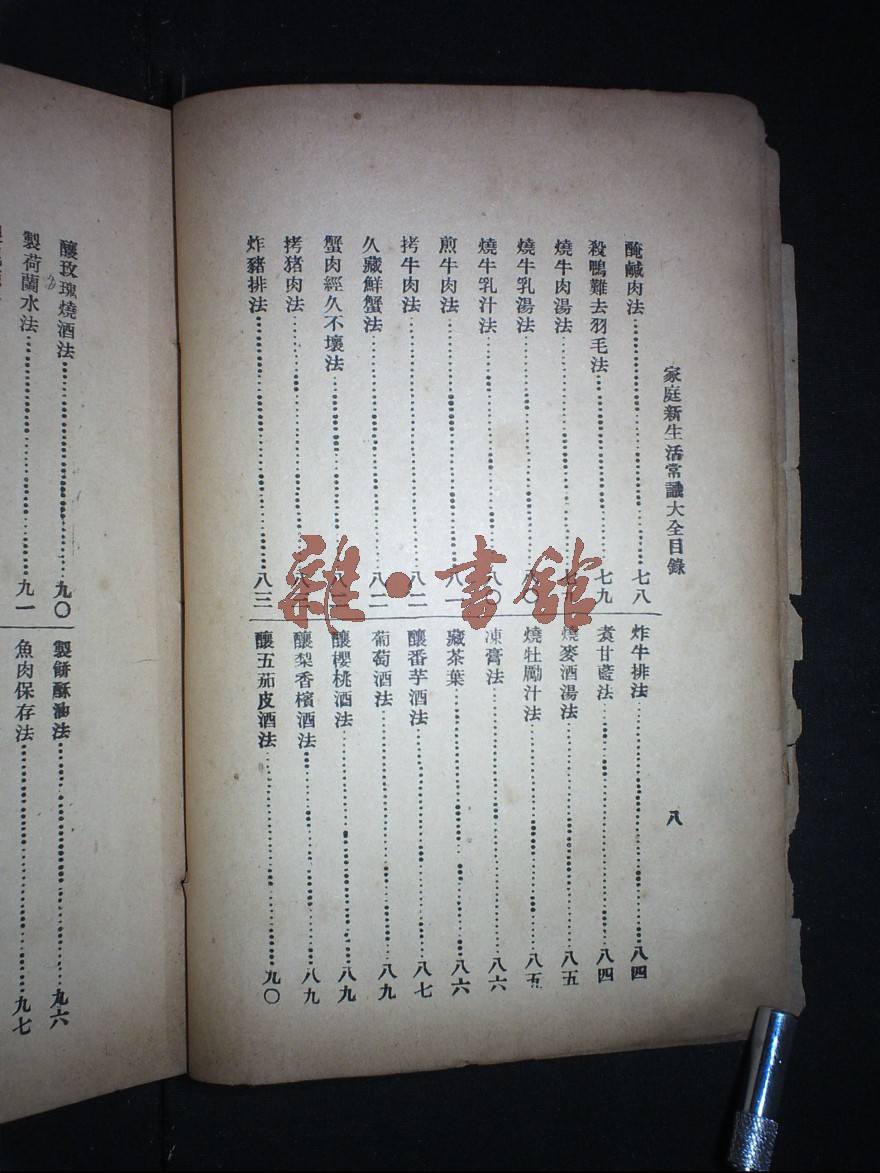 家庭新生活常識大全目錄
八
醃鹹肉法 七八
殺鴨難去羽毛法 七九
燒牛肉湯法
燒牛乳湯法 八〇
燒牛乳汁法 八〇
煎牛肉法 八一
拷牛肉法 八二
久藏鮮蟹法 八二
蟹肉經久不壞法
拷猪肉法
炸豬排法 八三
炸牛排法 八四
煑甘藍法 八四
燒麥酒湯法 八五
燒牡勵汁法 八五
凍膏法 八六
藏茶葉 八六
釀番芋酒法 八七
葡萄酒法 八九
釀櫻桃酒法 八九
釀梨香檳酒法 八九
釀五茄皮酒法 九〇
釀玫瑰燒酒法 九〇
製荷蘭水法 九一
製餅酥油法 九六
魚肉保存法 九七
雜·書館